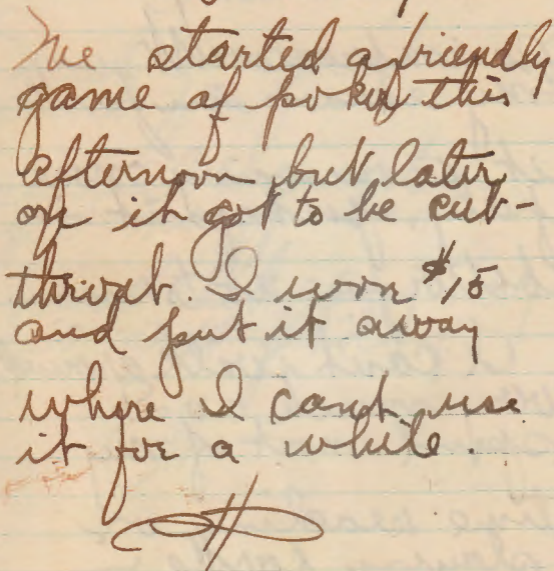 We started a friendly
game of poker this
afternoon but later
on it got to be cut-
throat. I won $15
and put it away
where I can't use
it for a while.